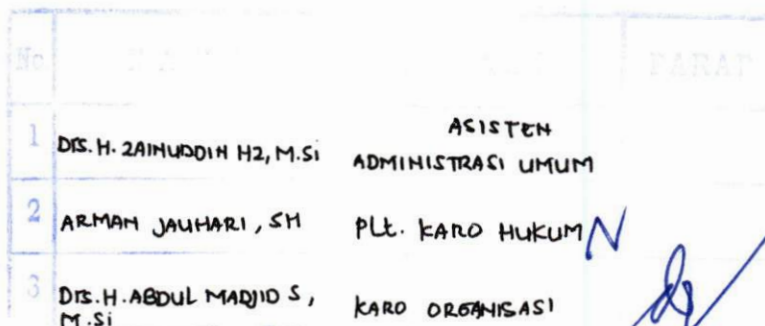 No PARAF
1 DRS. H. ZAINUDDIN HZ, M.Si ASISTEN ADMINISTRASI UMUM
2 ARMAN JAUHARI, SH PLt. KARO HUKUM
3 DRS. H. ABDUL MADJID S, M.Si KARO ORGANISASI